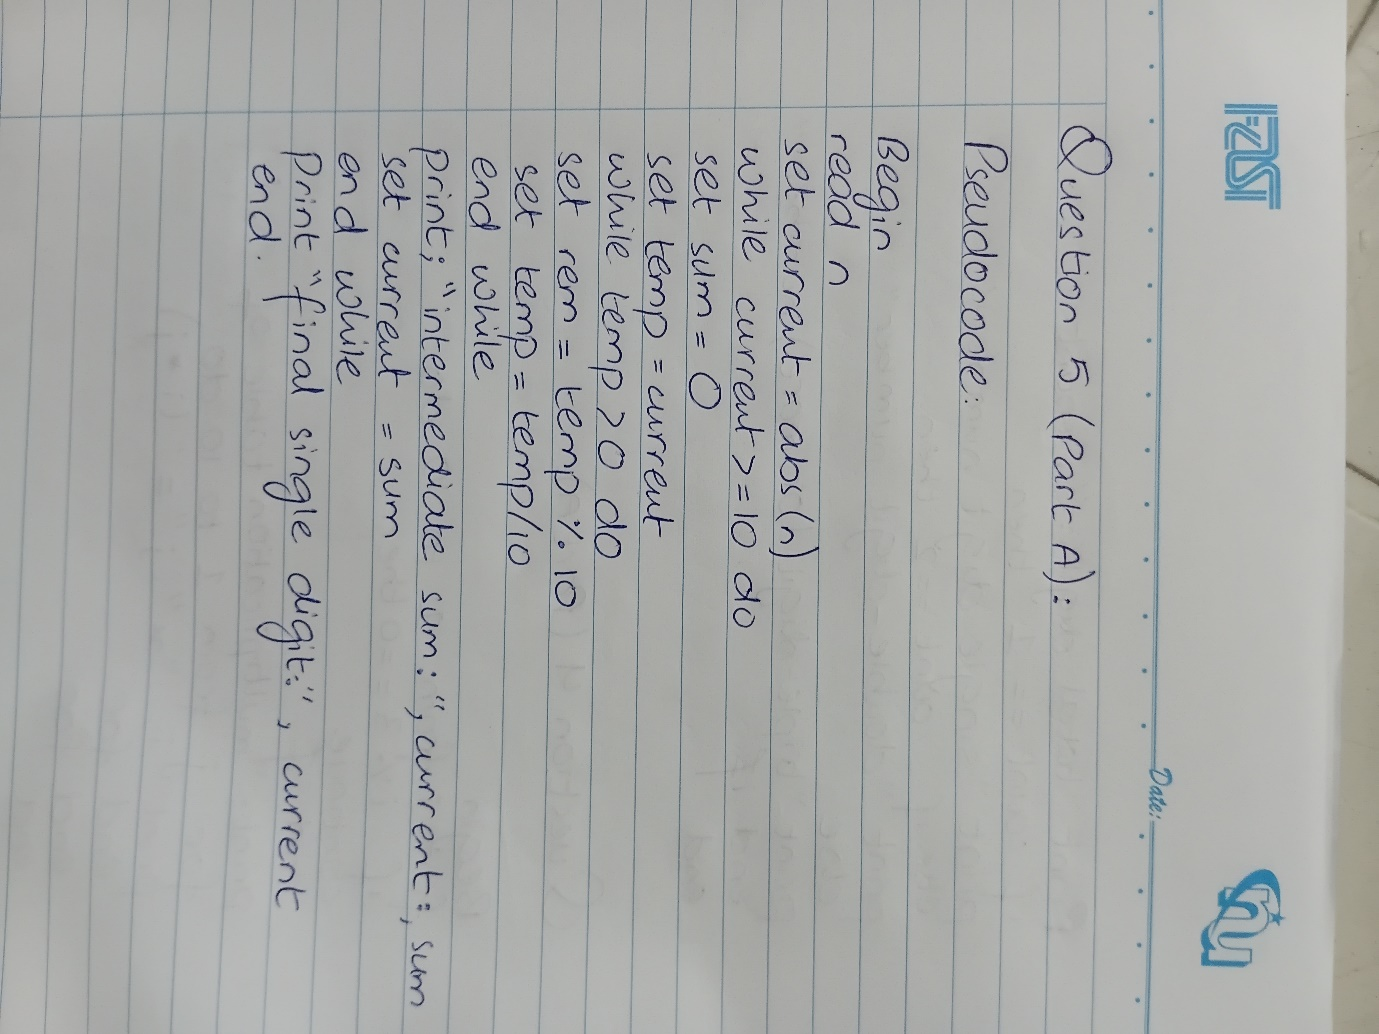 FAST
Date:
nu
Question 5 (Part A):
Pseudocode:
Begin
read n
set current = abs(n)
while current >= 10 do
set sum = 0
set temp = current
while temp > 0 do
set rem = temp % 10
set temp = temp/10
end while
print; "intermediate sum:", current:, sum
set current = sum
end while
Print "final single digit:", current
end.